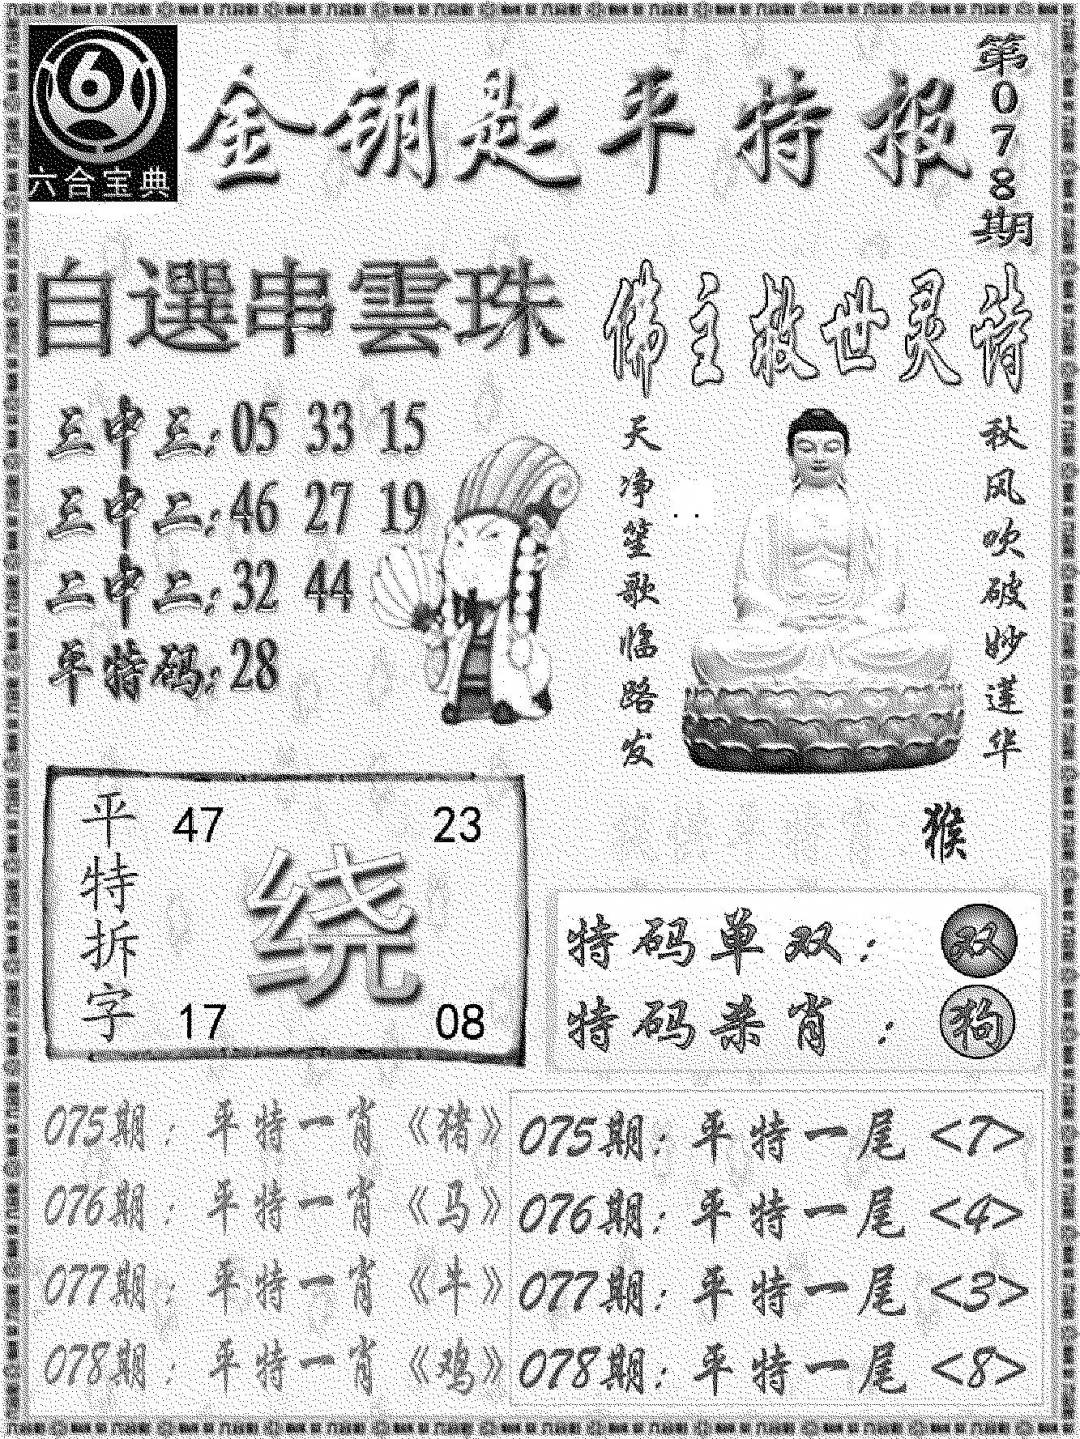 六合宝典
金钥匙平特报
第078期
自選串雲珠
三中三:05 33 15
三中二:46 27 19
二中二:32 44
平特码:28
佛主救世灵诗
秋风吹破妙莲华
天净笙歌临路发
猴
平特拆字
47 23
绕
17 08
特码单双: 双
特码杀肖: 狗
075期:平特一肖《猪》
076期:平特一肖《马》
077期:平特一肖《牛》
078期:平特一肖《鸡》
075期:平特一尾<7>
076期:平特一尾<4>
077期:平特一尾<3>
078期:平特一尾<8>